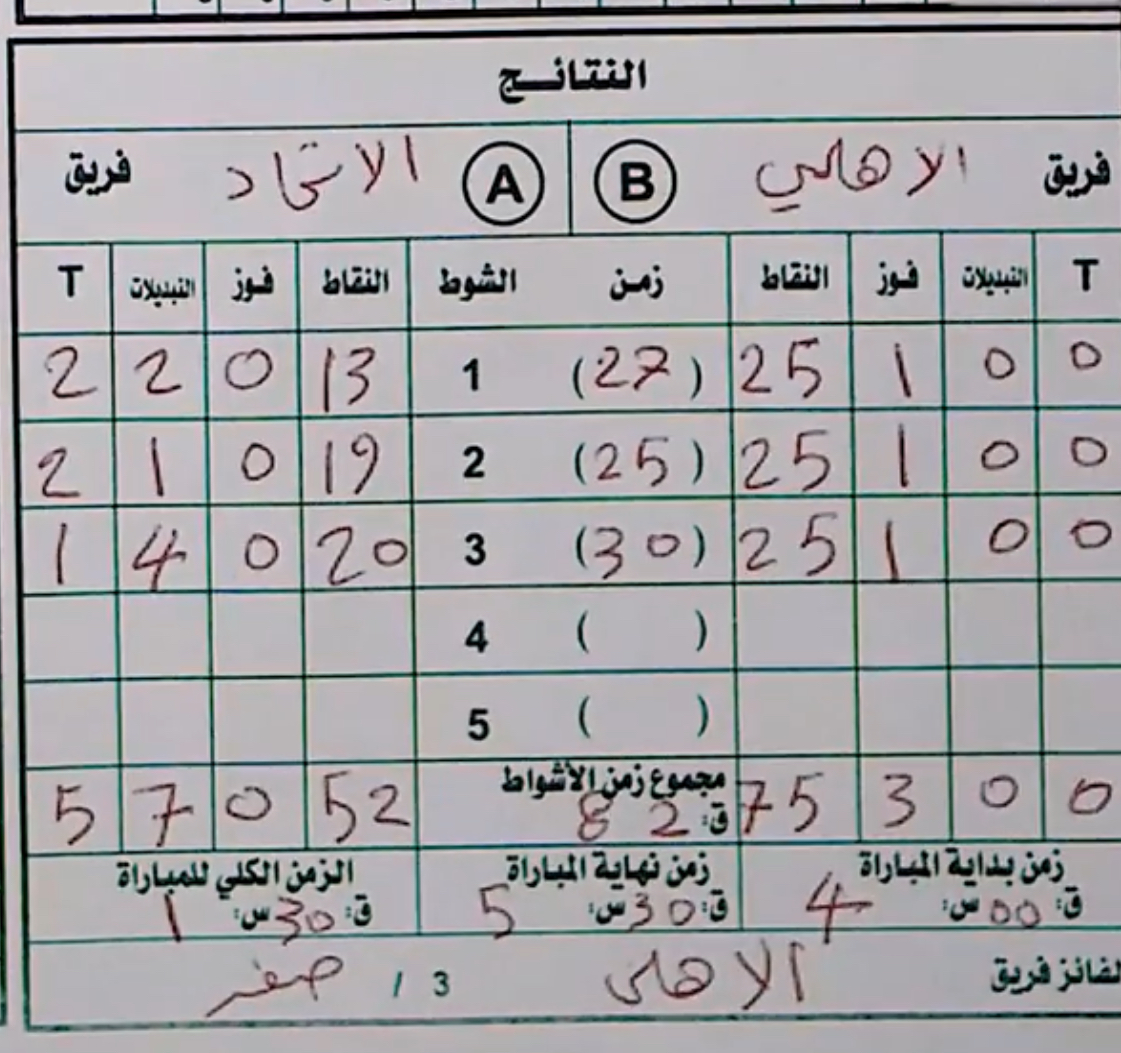 النتائـــج
فريق الاهلي B A الاتحاد فريق
T التبديلات فوز النقاط زمن الشوط النقاط فوز التبديلات T
0 0 1 25 (27) 1 13 0 2 2
0 0 1 25 (25) 2 19 0 1 2
0 0 1 25 (30) 3 20 0 4 1
( ) 4
( ) 5
0 0 3 75 مجموع زمن الأشواط ق: 82 52 0 7 5
زمن بداية المباراة زمن نهاية المباراة الزمن الكلي للمباراة
ق: 00 س: 4 ق: 30 س: 5 ق: 30 س: 1
لفائز فريق الاهلى 3 / صفر